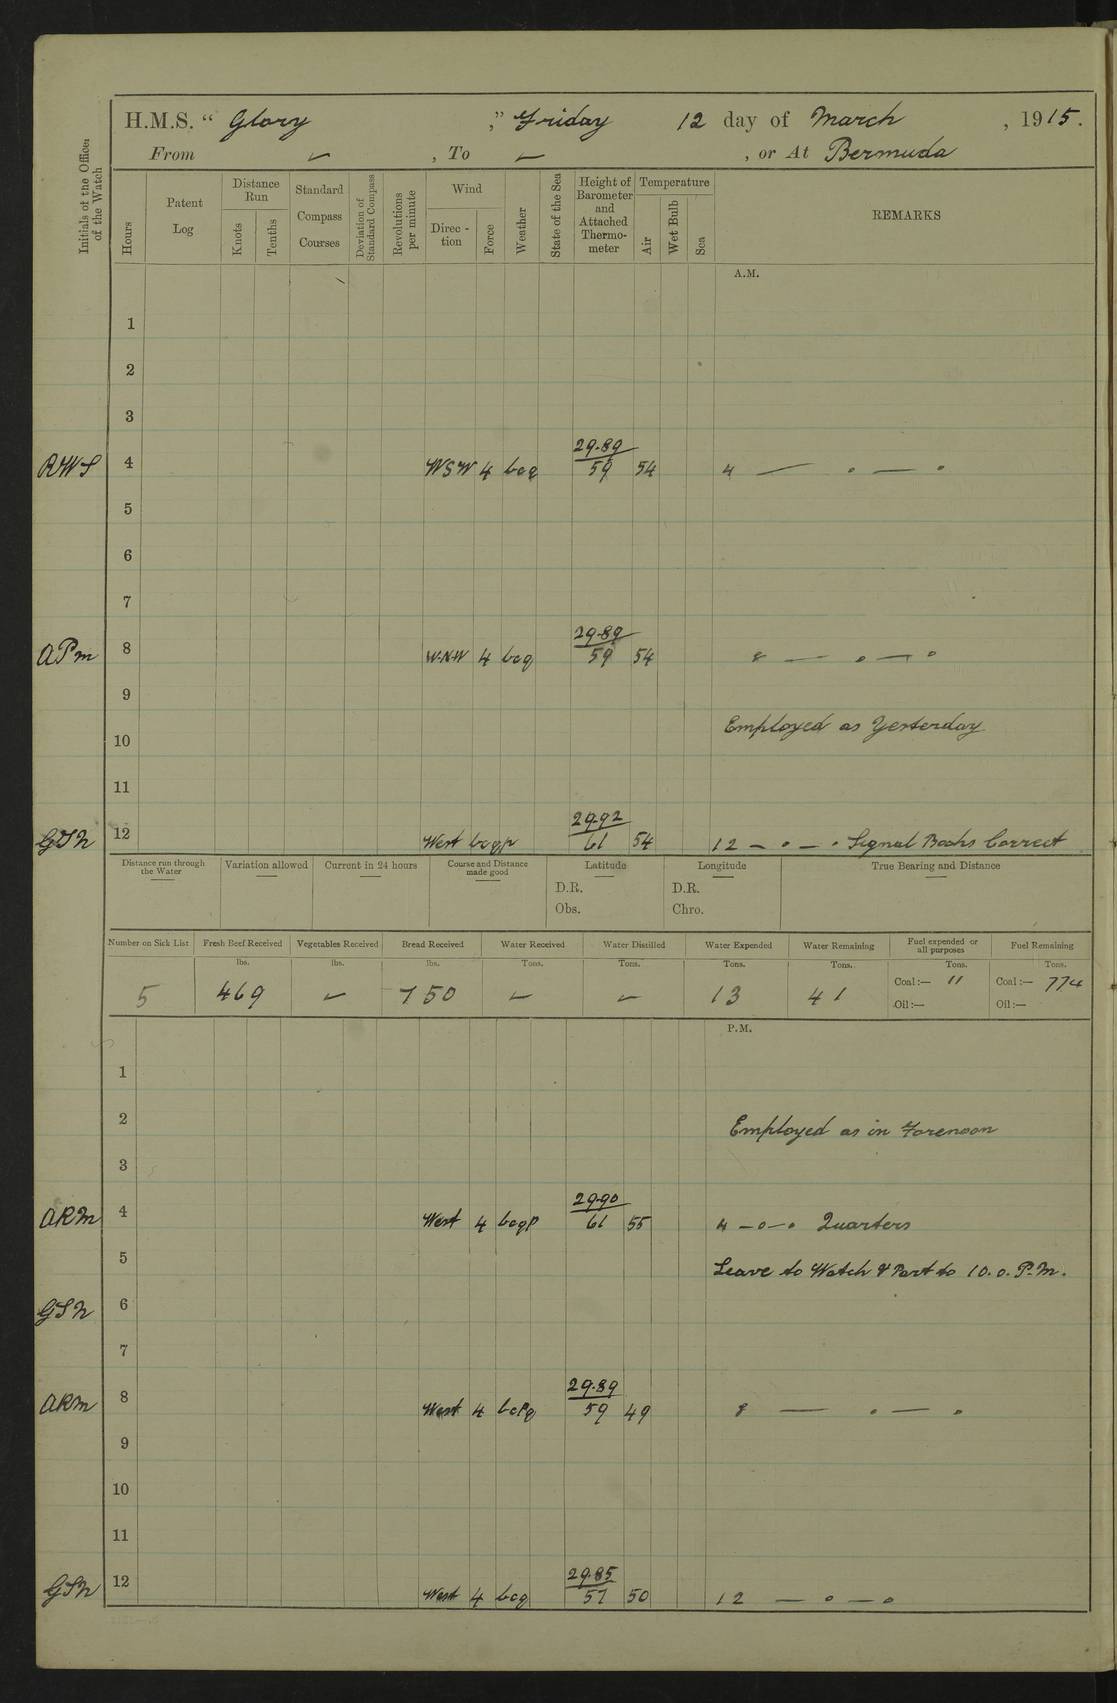 H.M.S. “ Glory ,” Friday 12 day of March , 1915.
From ✓ , To ✓ , or At Bermuda
Initials of the Officer of the Watch
Hours
Patent Log
Distance Run
Knots
Tenths
Standard Compass Courses
Deviation of Standard Compass
Revolutions per minute
Wind
Direc-tion
Force
Weather
State of the Sea
Height of Barometer and Attached Thermo-meter
Temperature
Air
Wet Bulb
Sea
REMARKS
A.M.
1
2
3
29.89
RWS 4 WSW 4 bcq 59 54 4 — • — •
5
6
7
29.89
APM 8 WNW 4 bcq 59 54 8 — • — •
9
Employed as Yesterday
10
11
29.92
GSN 12 West bcqp 61 54 12 — • — • Signal Books Correct
Distance run through the Water
Variation allowed
Current in 24 hours
Course and Distance made good
Latitude
D.R.
Obs.
Longitude
D.R.
Chro.
True Bearing and Distance
Number on Sick List Fresh Beef Received Vegetables Received Bread Received Water Received Water Distilled Water Expended Water Remaining Fuel expended or all purposes Fuel Remaining
lbs. lbs. lbs. Tons. Tons. Tons. Tons. Tons. Tons.
5 469 ✓ 750 ✓ ✓ 13 41 Coal:— 11 Coal:— 774
Oil:— Oil:—
P.M.
1
2
Employed as in Forenoon
3
29.90
ARM 4 West 4 bcqp 61 55 4 — o — • Quarters
5
Leave to Watch & Part to 10.0.P.M.
GSN 6
7
29.89
ARM 8 West 4 bcpq 59 49 8 — • — •
9
10
11
29.85
GSN 12 West 4 bcq 57 50 12 — o — o